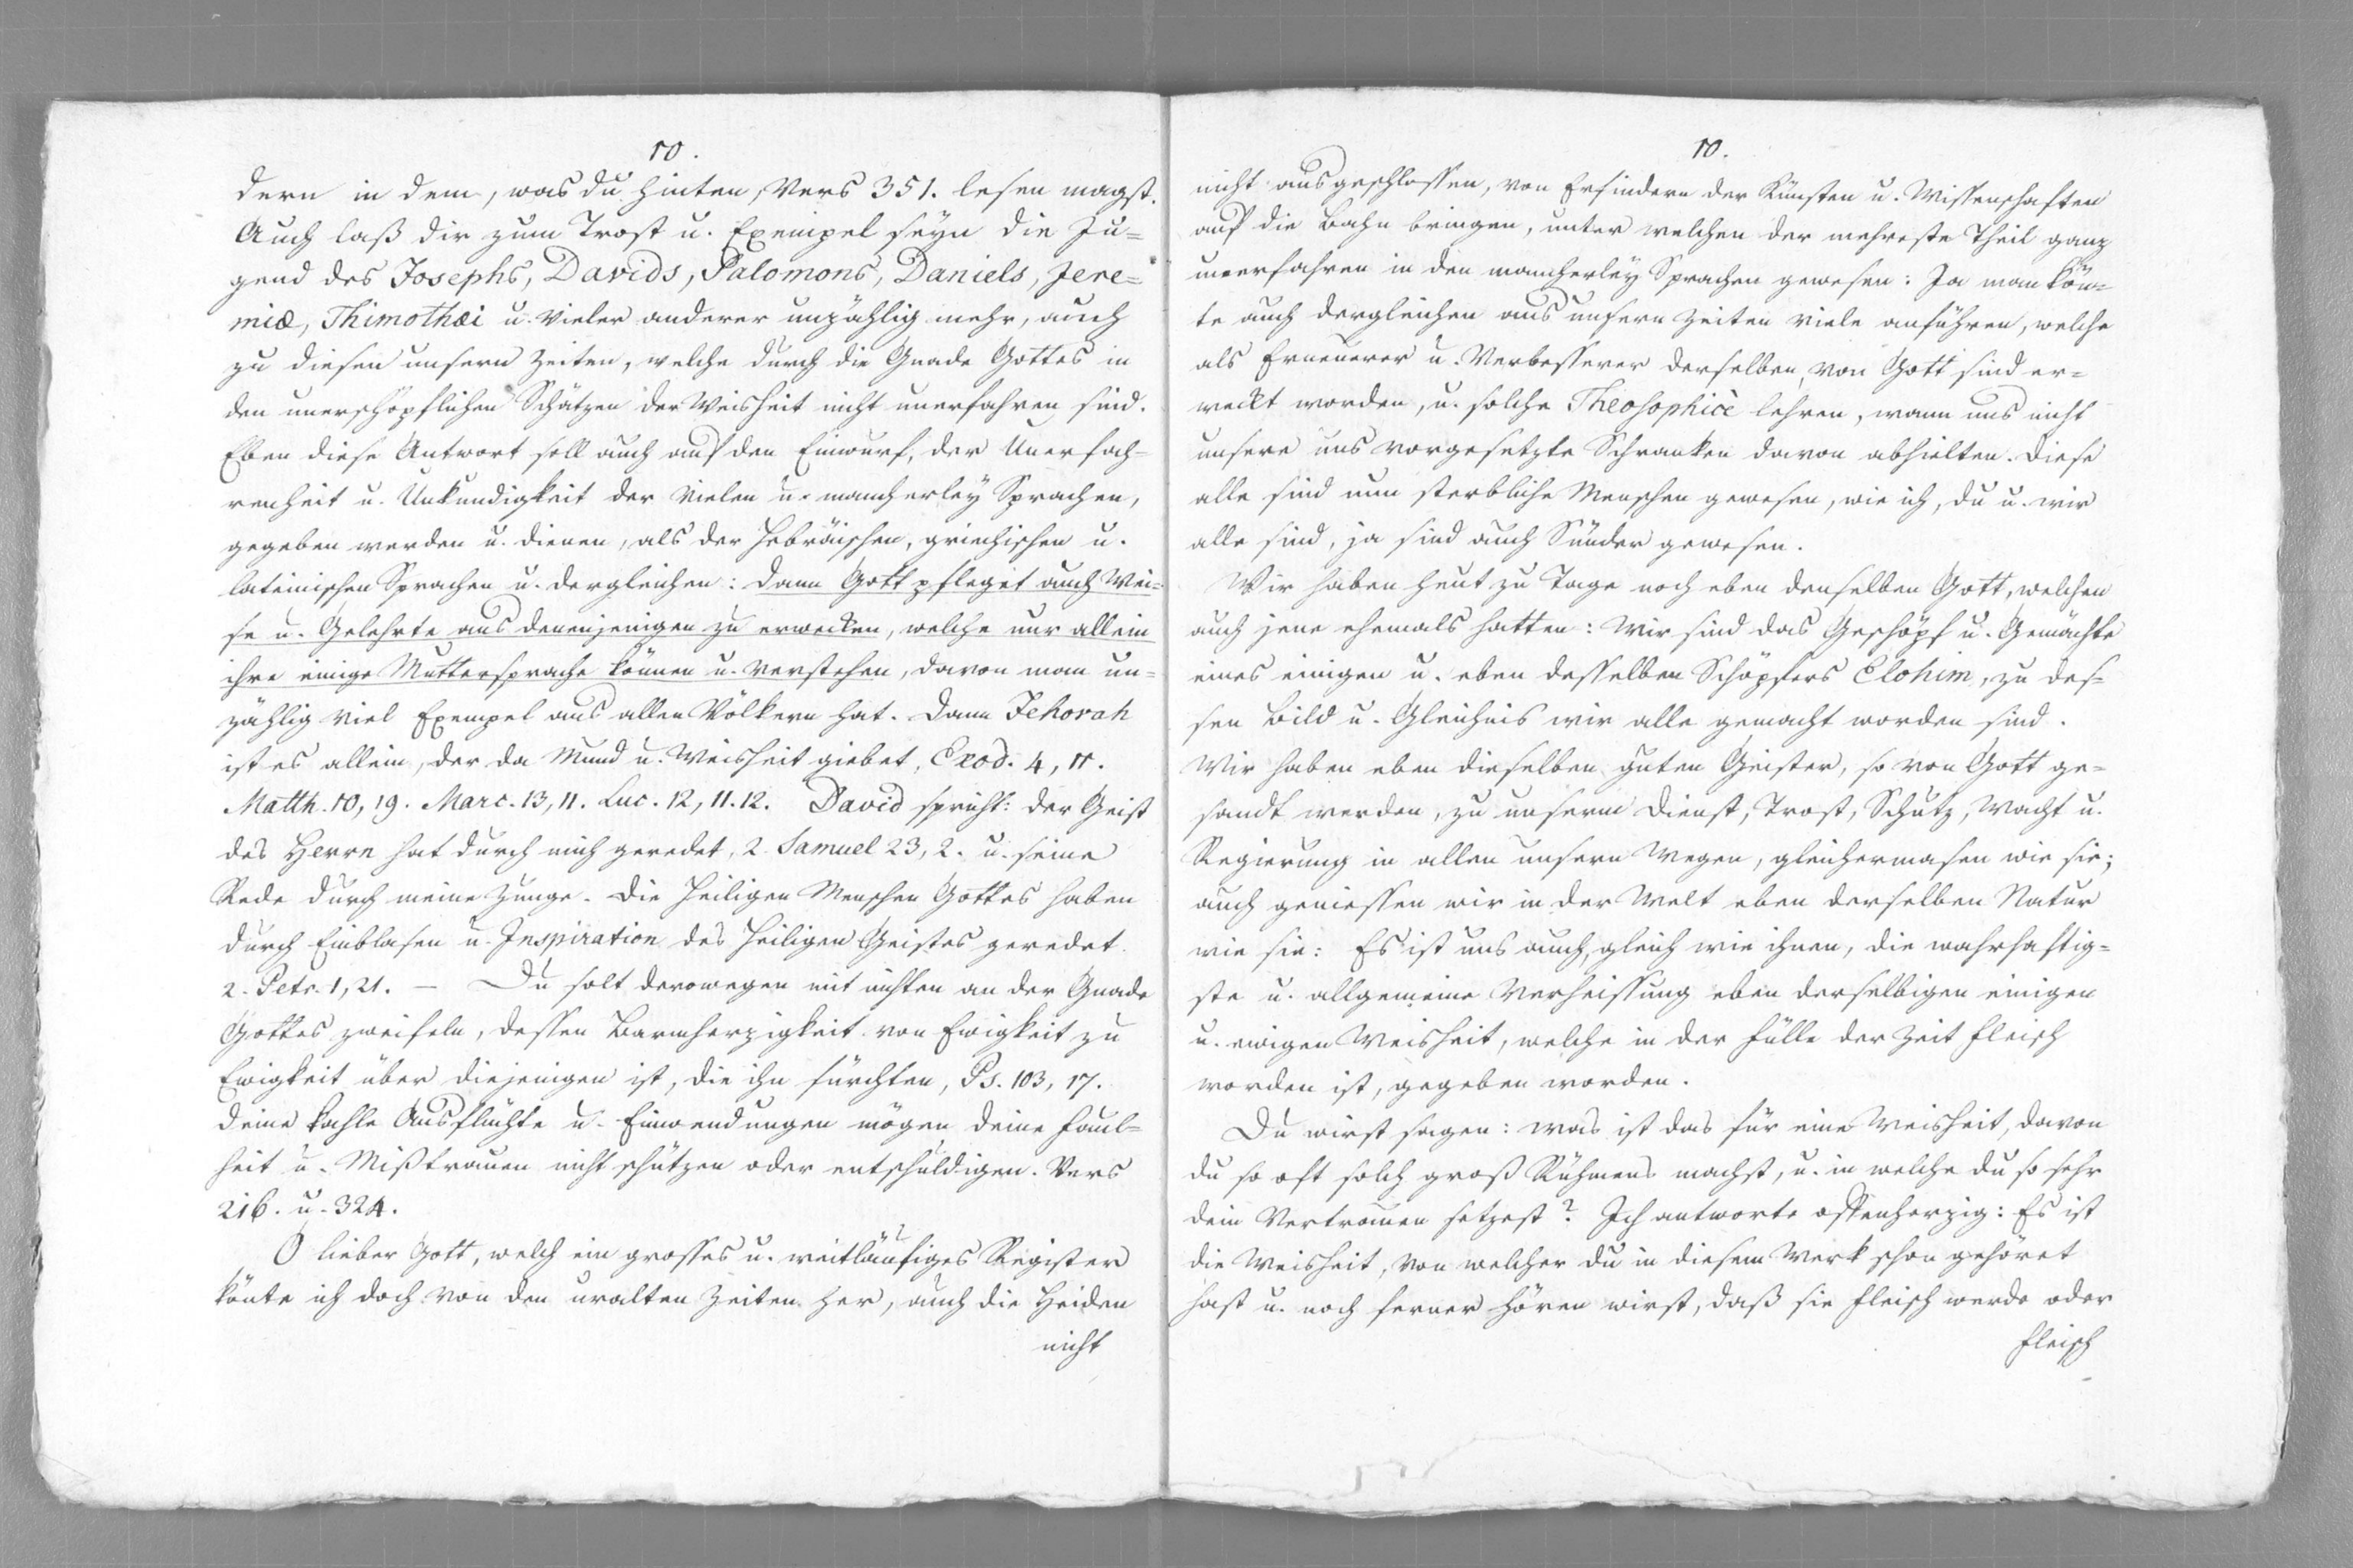 10.
dern in dem, was du hinten, Vers 351. lesen magst.
Auch laß dir zum Trost u. Exempel seyn die Ju=
gend des Josephs, Davids, Salomons, Daniels, Jere=
miæ, Thimothæi u. vieler anderer unzählig mehr, auch
zu diesen unsern Zeiten, welche durch die Gnade Gottes in
den unerschöpflichen Schätzen der Weisheit nicht unerfahren sind.
Eben diese Antwort soll auch auf den Einwurf, der Unerfah=
renheit u. Unkundigkeit der vielen u. mancherley Sprachen,
gegeben werden u. dienen, als der Hebräischen, griechischen u.
lateinischen Sprachen u. dergleichen: dann Gott pfleget auch Wei=
se u. Gelehrte aus denenjenigen zu erwecken, welche nur allein
ihre einige Muttersprache können u. verstehen, davon man un=
zählig viel Exempel aus allen Völkern hat. Dann Jehovah
ist es allein, der da Mund u. Weisheit giebet, Exod. 4, 11.
Matth. 10, 19. Marc. 13, 11. Luc. 12, 11. 12. David spricht: der Geist
des Herrn hat durch mich geredet, 2. Samuel 23, 2. u. seine
Rede durch meine Zunge. Die heiligen Menschen Gottes haben
durch Einblasen u. Inspiration des heiligen Geistes geredet.
2. Petr. 1, 21. — Du solt derowegen mit nichten an der Gnade
Gottes zweifeln, dessen Barmherzigkeit von Ewigkeit zu
Ewigkeit über diejenigen ist, die ihn fürchten, Ps. 103, 17.
deine kahle Ausflüchte u. Einwendungen mögen deine Faul=
heit u. Mißtrauen nicht schützen oder entschuldigen. Vers
216. u. 324.
O lieber Gott, welch ein grosses u. weitläufiges Register
könte ich doch von den uralten Zeiten her, auch die Heiden
nicht
10.
nicht ausgeschlossen, von Erfindern der Künsten u. Wissenschaften
auf die Bahn bringen, unter welchen der mehreste Theil ganz
unerfahren in den mancherley Sprachen gewesen: Ja man kön=
te auch dergleichen aus unsern Zeiten viele anführen, welche
als Erneuerer u. Verbesserer derselben, von Gott sind er=
weckt worden, u. solche Theosophicè lehren, wann uns nicht
unsere uns vorgesetzte Schranken davon abhielten. Diese
alle sind nun sterbliche Menschen gewesen, wie ich, du u. wir
alle sind, ja sind auch Sünder gewesen.
Wir haben heut zu Tage noch eben denselben Gott, welchen
auch jene ehemals hatten: Wir sind das Geschöpf u. Gemächte
eines einigen u. eben desselben Schöpfers Elohim, zu des=
sen Bild u. Gleichnis wir alle gemacht worden sind.
Wir haben eben dieselben guten Geister, so von Gott ge=
sandt werden, zu unserm Dienst, Trost, Schutz, Wacht u.
Regierung in allen unsern Wegen, gleichermasen wie sie;
auch geniessen wir in der Welt eben derselben Natur
wie sie: Es ist uns auch, gleich wie ihnen, die wahrhaftig=
ste u. allgemeine Verheissung eben derselbigen einigen
u. ewigen Weisheit, welche in der Fülle der Zeit Fleisch
worden ist, gegeben worden.
Du wirst sagen: was ist das für eine Weisheit, davon
du so oft solch groß Rühmens machst, u. in welche du so sehr
dein Vertrauen setzest? Ich antworte offenherzig: Es ist
die Weisheit, von welcher du in diesem Werk schon gehöret
hast u. noch ferner hören wirst, daß sie Fleisch werde oder
Fleisch